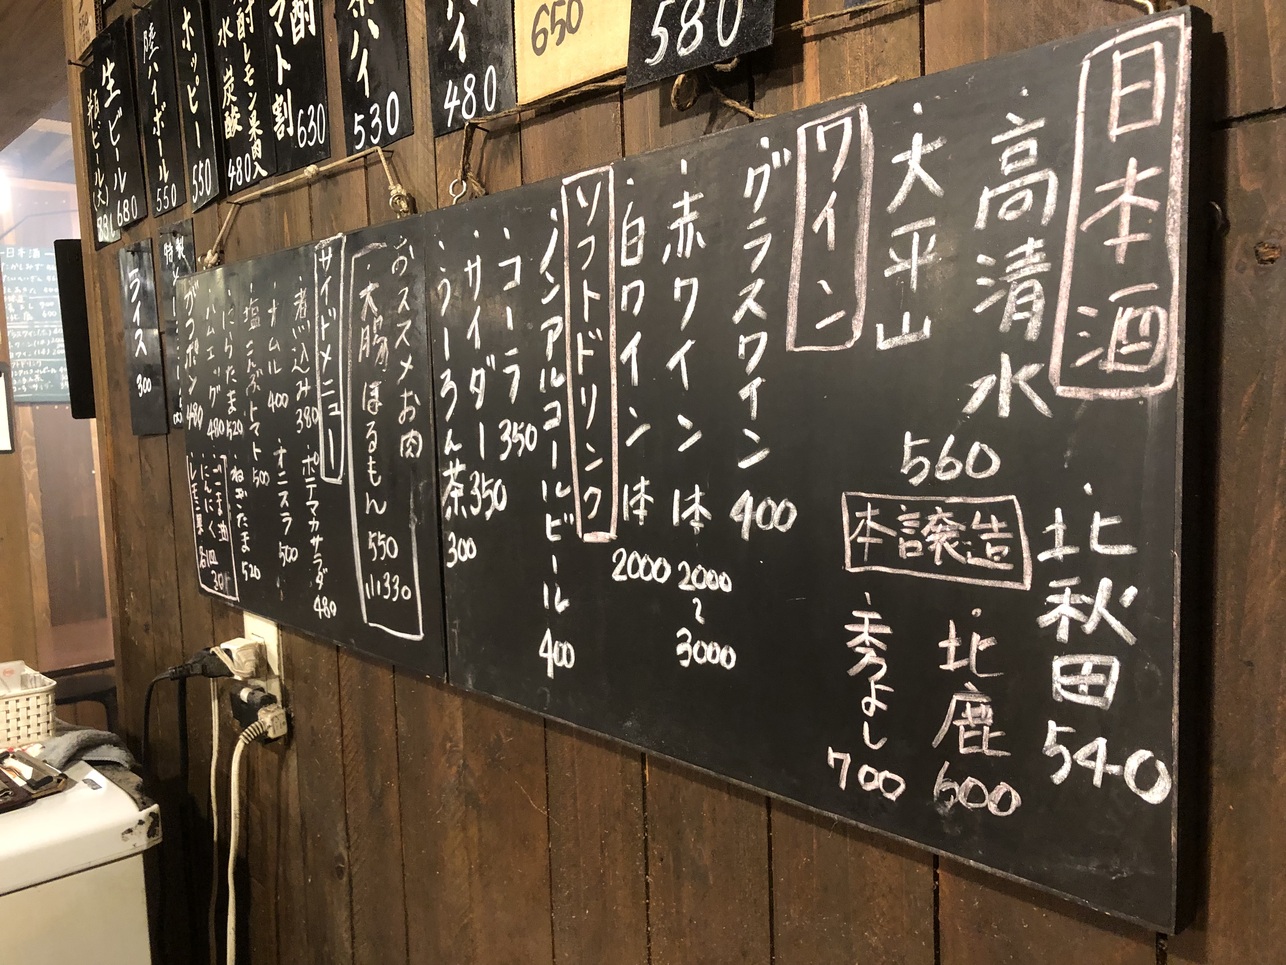 日本酒
・高清水
・大平山
560
・北秋田
540
本譲造
・北鹿
600
・秀よし
700
ワイン
・グラスワイン 400
・赤ワイン 一本 2000〜3000
・白ワイン 一本 2000
ソフトドリンク
・ノンアルコールビール 400
・コーラ 350
・サイダー 350
・うーろん茶 300
おススメお肉
・大腸ほるもん 550
小330
サイドメニュー
・煮込み 380
・ポテマカサラダ 480
・ナムル 400
・オニスラ 500
・塩こんぶトマト 500
・にらたま 520
・ねぎたま 520
・ハムエッグ 480
・ガツポン 480
ごま油
にんにく
580
650
480
530
トマト割 630
レモン果肉入
水・炭酸 480
ホッピー 550
ハイボール 550
生ビール 680
瓶ビール(大)
ライス 300
特製